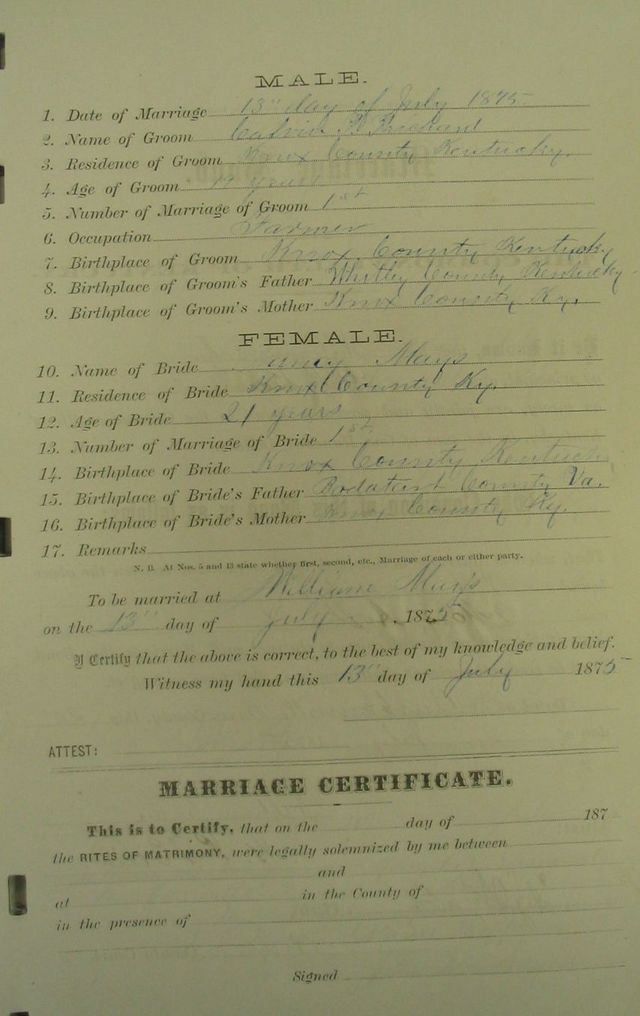 MALE.
1. Date of Marriage 13" day of July 1875
2. Name of Groom Calvin
3. Residence of Groom Knox County Kentucky.
4. Age of Groom 19 years
5. Number of Marriage of Groom 1st
6. Occupation Farmer
7. Birthplace of Groom Knox County Kentucky
8. Birthplace of Groom's Father Whitley County Kentucky
9. Birthplace of Groom's Mother Knox County Ky.
FEMALE.
10. Name of Bride Mays
11. Residence of Bride Knox County Ky.
12. Age of Bride 21 years
13. Number of Marriage of Bride 1st
14. Birthplace of Bride Knox County Kentucky
15. Birthplace of Bride's Father County Va.
16. Birthplace of Bride's Mother Knox County Ky.
17. Remarks
N. B. At Nos. 5 and 13 state whether first, second, etc., Marriage of each or either party.
To be married at William Mays
on the 13" day of July, 1875
I Certify that the above is correct, to the best of my knowledge and belief.
Witness my hand this 13" day of July 1875
ATTEST:
MARRIAGE CERTIFICATE.
This is to Certify, that on the day of 187
the RITES OF MATRIMONY, were legally solemnized by me between
and
at in the County of
in the presence of
Signed